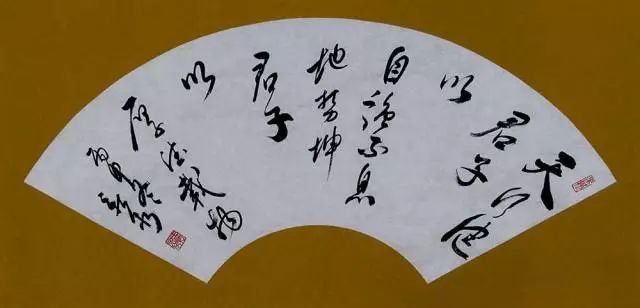 天行健
君子
以
自强不息
地势坤
君子
以
厚德載物